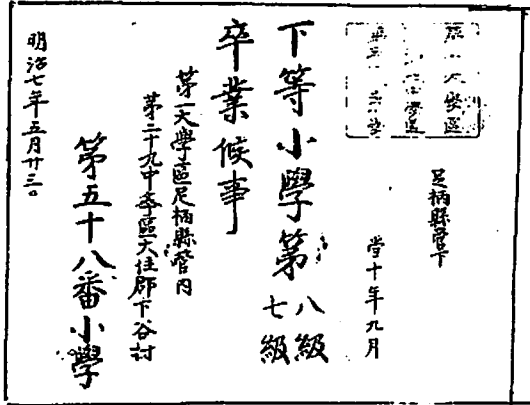 足柄縣管下
當十年九月
下等小學第八級
七級
卒業候事
第一大學區足柄縣管内
第二十九中學區大住郡下谷村
第五十八番小學
明治七年五月廿三日